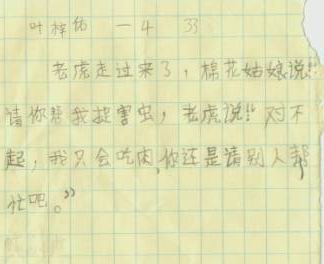 叶梓佑 一4 33
老虎走过来了，棉花姑娘说!!
请你帮我捉害虫，老虎说!!对不
起，我只会吃肉,你还是请别人帮
忙吧。”